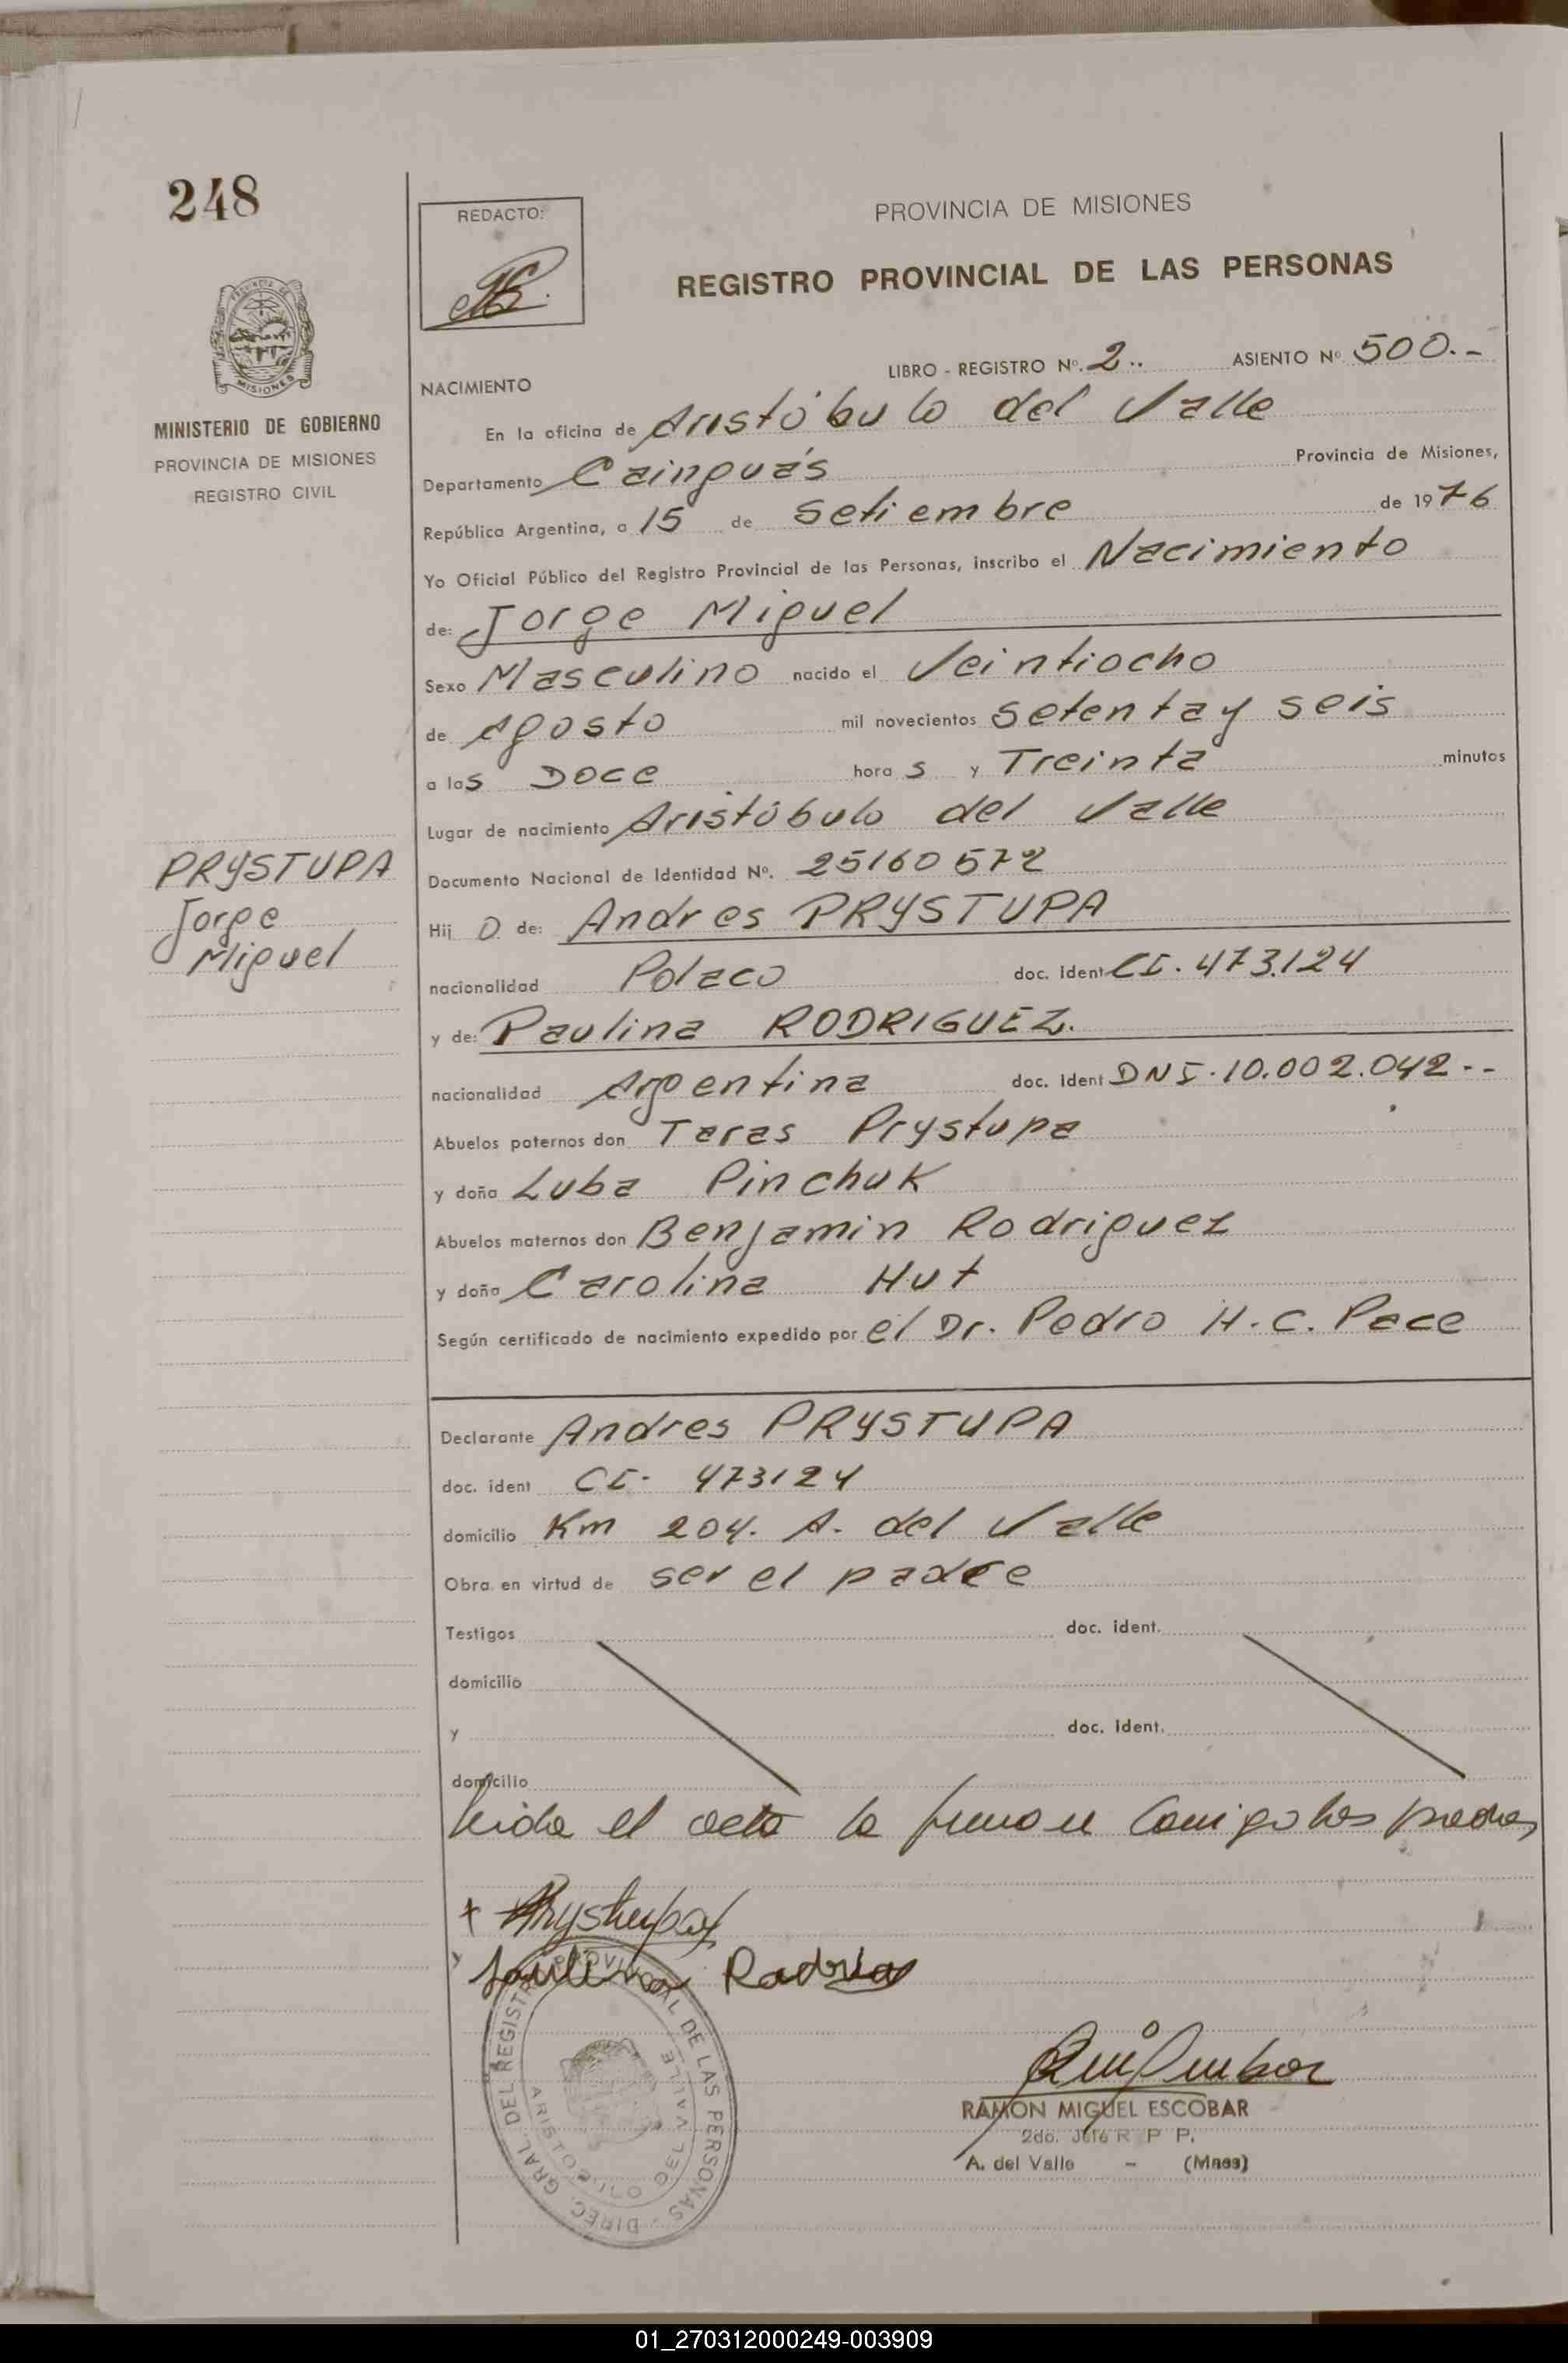 248
REDACTO:
PROVINCIA DE MISIONES
REGISTRO PROVINCIAL DE LAS PERSONAS
MISIONES
MINISTERIO DE GOBIERNO
PROVINCIA DE MISIONES
REGISTRO CIVIL
LIBRO - REGISTRO Nº. 2.. ASIENTO Nº. 500.-
NACIMIENTO
En la oficina de Aristóbulo del Valle
Departamento Cainguás Provincia de Misiones,
República Argentina, a 15 de Setiembre de 1976
Yo Oficial Público del Registro Provincial de las Personas, inscribo el Nacimiento
de: Jorge Miguel
Sexo Masculino nacido el Veintiocho
de Agosto mil novecientos setenta y seis
a las Doce horas y Treinta minutos
Lugar de nacimiento Aristóbulo del Valle
PRYSTUPA
Jorge
Miguel
Documento Nacional de Identidad Nº. 25160572
Hijo de: Andres PRYSTUPA
nacionalidad Polaco doc. ident CI. 473.124
y de: Paulina RODRIGUEZ.
nacionalidad Argentina doc. ident DNI. 10.002.042--
Abuelos paternos don Taras Prystupa
y doña Luba Pinchuk
Abuelos maternos don Benjamin Rodriguez
y doña Carolina Hut
Según certificado de nacimiento expedido por el Dr. Pedro H. C. Pace
Declarante Andres PRYSTUPA
doc. ident CI. 473124
domicilio Km 204. A. del Valle
Obra en virtud de ser el padre
Testigos doc. ident.
domicilio
y doc. ident.
domicilio
Leida el acta la firman conmigo los padres
Prystupa
Paulina
DIREC. GRAL. DEL REGISTRO PROVINCIAL DE LAS PERSONAS
ARISTOBULO DEL VALLE
RAMON MIGUEL ESCOBAR
2do. Jefe R P P.
A. del Valle - (Mnes)
01_270312000249-003909